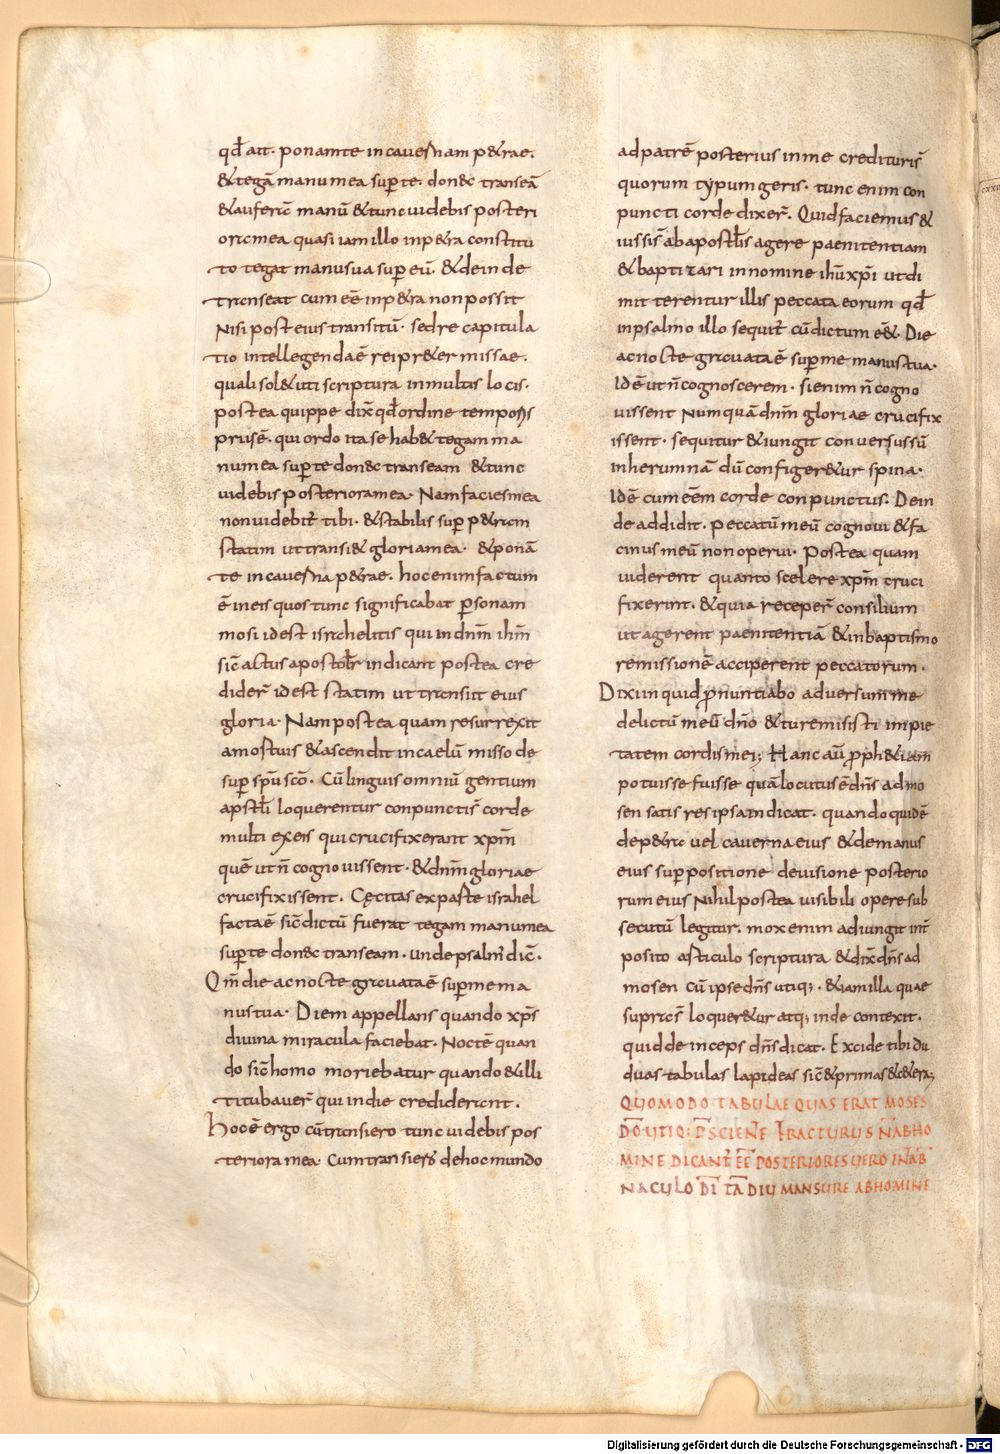 qd̄ ait. ponam te in cauernam p&rae.
& tegā manu mea sup te. donec transeā
& auferā manū & tunc uidebis posteri
ora mea quasi iam illo in p&ra constitu
to tegat manu sua sup eū. & deinde
transeat cum eē in p&ra non possit
Nisi post eius transitū. sed recapitula
tio intellegenda ē rei pr&ermissae.
quali sol& uti scriptura in multis locis.
postea quippe dix̄ qd̄ ordine temporis
prius ē. qui ordo ita se hab& tegam ma
nu mea sup te donec transeam & tunc
uidebis posteriora mea. Nam facies mea
non uidebit̄ tibi. & stabilis sup p&ram
statim ut transi& gloria mea. & ponā
te in cauerna p&rae. hoc enim factum
ē in eis quos tunc significabat psonam
mosi id est israhelitis qui in dn̄m ih̄m
sic̄ actus apostolr̄ indicant postea cre
dider̄ id est statim ut transiit eius
gloria. Nam postea quam resurrexit
a mortuis & ascendit in caelū misso de
sup sp̄u sc̄o. Cū linguis omniū gentium
apstl̄i loquerentur conpuncti s̄ corde
multi ex eis qui crucifixerant xp̄m
quē ut n̄ cognouissent. & dn̄m gloriae
crucifixissent. Cęcitas ex parte israhel
facta ē sic̄ dictū fuerat tegam manu mea
sup te donec transeam. unde psalm̄ dic̄.
Qm̄ die ac nocte grauata ē sup me ma
nus tua. Diem appellans quando xp̄s
diuina miracula faciebat. Noctē quan
do sic̄ homo moriebatur quando & illi
titubauer̄ qui in die crediderant.
Hoc ē ergo cū transiero tunc uidebis pos
teriora mea. Cum transiero de hoc mundo
ad patrē posterius in me credituri s̄
quorum typum geris. tunc enim con
puncti corde dixer̄. Quid faciemus &
iussi s̄ ab apostl̄is agere paenitentiam
& baptizari in nomine ih̄u xp̄i ut di
mitterentur illis peccata eorum qd̄
in psalmo illo sequit̄ cū dictum eē&. Die
ac nocte grauata ē sup me manus tua.
Id ē ut n̄ cognoscerem. si enim n̄ cogno
uissent Numquā dn̄m gloriae crucifix
issent. sequitur & iungit conuersus sū
in herumnā dū configer&ur spina.
Id ē cum eēm corde conpunctus. Dein
de addidit. peccatū meū cognoui & fa
cinus meū non operui. Postea quam
uiderent quanto scelere xp̄m cruci
fixerint. & quia receper̄ consilium
ut agerent paenitentiā & in baptismo
remissionē acciperent peccatorum.
Dixi inquid pnuntiabo aduersum me
delictū meū dn̄o & tu remisisti impie
tatem cordis mei; Hanc aū proph&iam
potuisse fuisse quā locutus ē dn̄s ad mo
sen satis res ipsa indicat. quando quidē
de p&ra uel cauerna eius & de manus
eius suppositione de uisione posterio
rum eius Nihil postea uisibili opere sub
secutū legitur. mox enim adiungit int̄
posito articulo scriptura & dix̄ dn̄s ad
mosen cū ipse dn̄s utiq;. & iam illa quae
supra s̄ loquer&ur atq; inde contexit.
quid deinceps dn̄s dicat. Excide tibi du
duas tabulas lapideas sic̄ & primas & c&era;
QUOMODO TABULAE QUAS ERAT MOSES
D̄O UTIQ: P̄SCIENTE FRACTURUS N̄ AB HO
MINE DICANT̄ EE POSTERIORES UERO
NACULO D̄I TADIU MANSURE AB HOMINE
Digitalisierung gefördert durch die Deutsche Forschungsgemeinschaft - DFG